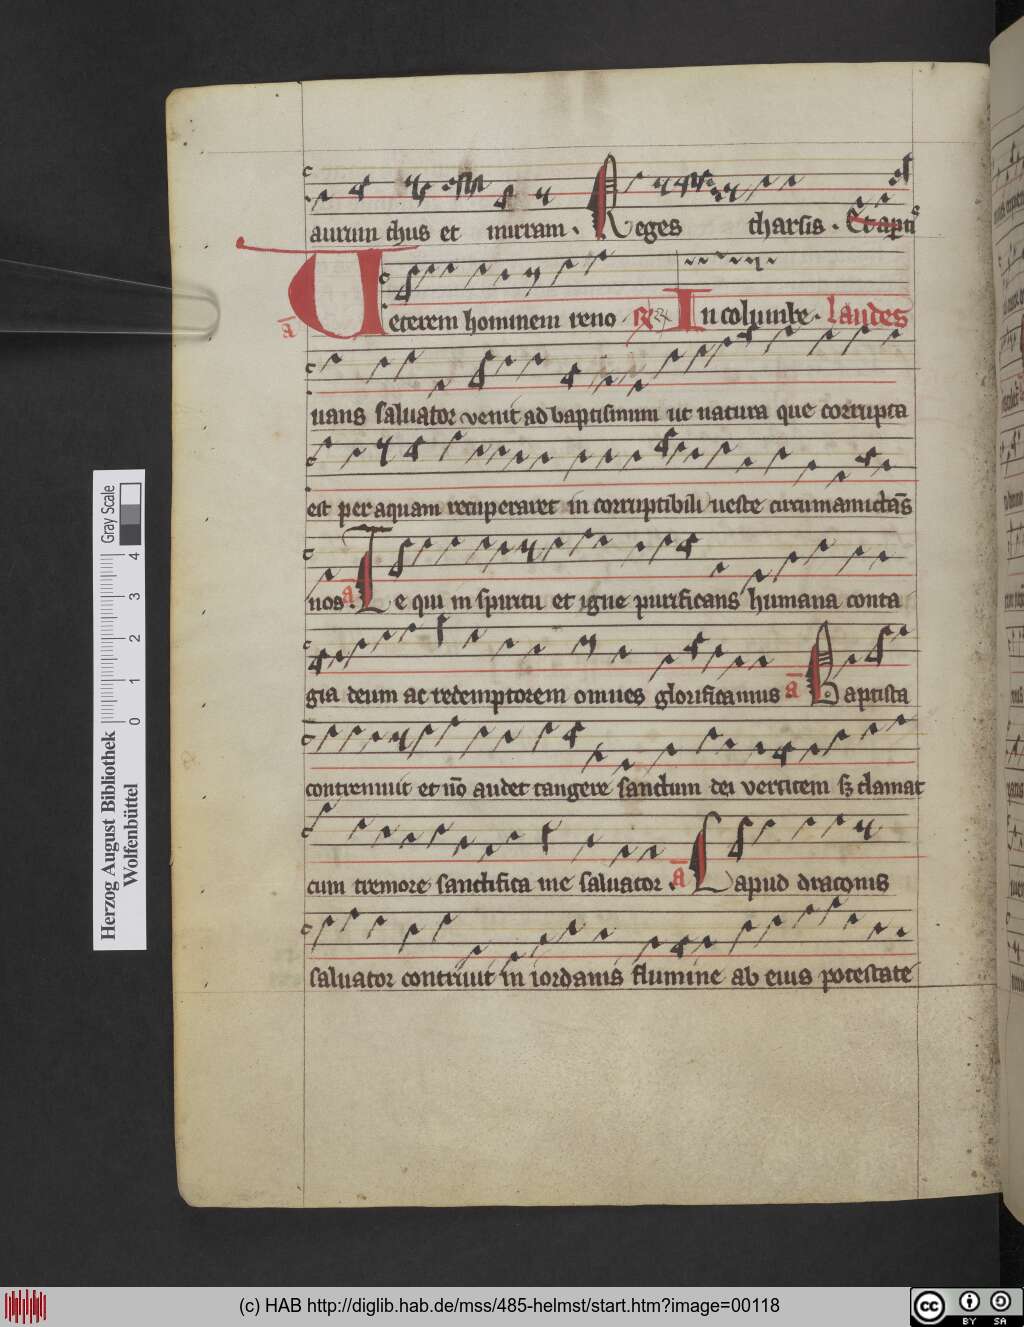 aurum thus et mirram. Reges tharsis.
a Ueterem hominem reno In columbe. Laudes
uans saluator uenit ad baptismum ut natura que corrupta
est per aquam recuperaret in corruptibili ueste circumamictās
nos. a Te qui in spiritu et igne purificans humana conta
gia deum ac redemptorem omnes glorificamus a Baptista
contremuit et nō audet tangere sanctum dei verticem sꝫ clamat
cum tremore sanctifica me saluator. a Capud draconis
saluator contriuit in iordanis flumine ab eius potestate
Herzog August Bibliothek
Wolfenbüttel
Gray Scale
0 1 2 3 4
(c) HAB http://diglib.hab.de/mss/485-helmst/start.htm?image=00118
cc BY SA